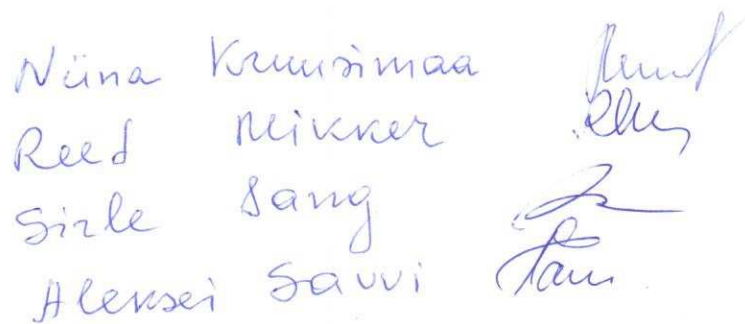 Niina Kruusimaa
Reed Mikker
Sirle Sang
Aleksei Savvi